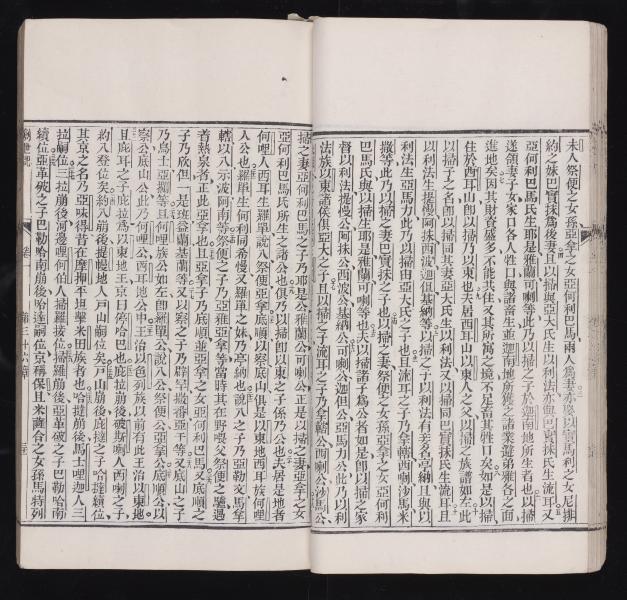 未人祭便之女孫亞拿之女亞何利巴馬兩人為妻亦娶以實馬利之女尼排
約之妹巴實抹為後妻且以掃與亞大氏生以利法亦與巴實抹氏生流耳又
亞何利巴馬氏生耶是雅蘭可喇等此乃以掃之子於迦南地所生者也以掃
遂領妻子女家口各人牲口與諸畜生並迦南地所獲之諸業避弟雅各之面
進地矣因其財貨盛多不能共住又其所寓之境不足畜其牲口矣如是以掃
住於西耳山即以掃乃以東也夫居西耳山以東人之父以掃之族譜如左此
以掃子之名即以掃同其妻亞大氏生以利法又以掃同巴實抹氏生流耳且
以利法生提慢阿抹西波迦但基納等以掃之子以利法有妾名亭納且與以
利法生亞馬力此乃以掃由亞大氏之子也且流耳之子乃拿轄西喇沙馬米
撒等此乃以掃之妻巴實抹之子也以掃之妻祭便之女孫亞拿之女亞何利
巴馬氏與以掃生耶是雅蘭可喇等也夫以掃諸子為公者如是即以掃之家
督以利法提慢公阿抹公西波公基納公可喇公迦但公亞馬力公此乃以利
法族以東諸侯俱亞大之子且以掃子流耳之子乃拿轄公西喇公沙馬公
掃之妻亞何利巴馬之子乃耶是公雅蘭公可喇公正是以掃之妻亞拿之女
亞何利巴馬氏所生之諸公也俱乃以掃即以東之子係乃公也夫居是地者
何哩人西耳生羅單說八祭便亞拿底順以察底山俱是以東地西耳族何哩
人公也羅單生何利同希慢又羅單之妹乃亭納也說八之子乃亞勒文馬拿
轄以八示波阿南等祭便之子乃亞雅亞拿等當時其在野喂父祭便之驢遇
著熱泉者正此亞拿也且亞拿子乃底順並亞拿之女亞何利巴馬又底順之
子乃欣但一是班益蘭基蘭等又以察之子乃辟罕撒番亞干等又底山之子
乃烏士亞蘭等且何哩族公如左即羅單公說八公祭便公亞拿公底順公以
察公底山公此乃何哩公西耳地公中王治以色列族以前有此王治以東地
且庇耳之子庇拉為以東地王京曰停哈巴也庇拉崩後破斯喇人西喇之子
約八登位矣約八崩後提幔地人戶山嗣位矣戶山崩後庇撻之子哈撻續位
其京之名乃亞味得昔在摩押平坦擊米田族者也哈撻崩後馬士哩迦人三
拉嗣位三拉崩後河邊哩何伯人掃羅接位掃羅崩後亞革破之子巴勒哈南
續位亞革破之子巴勒哈南崩後哈達嗣位京稱保且米薩合之女孫馬特列
卷一
第三十六章